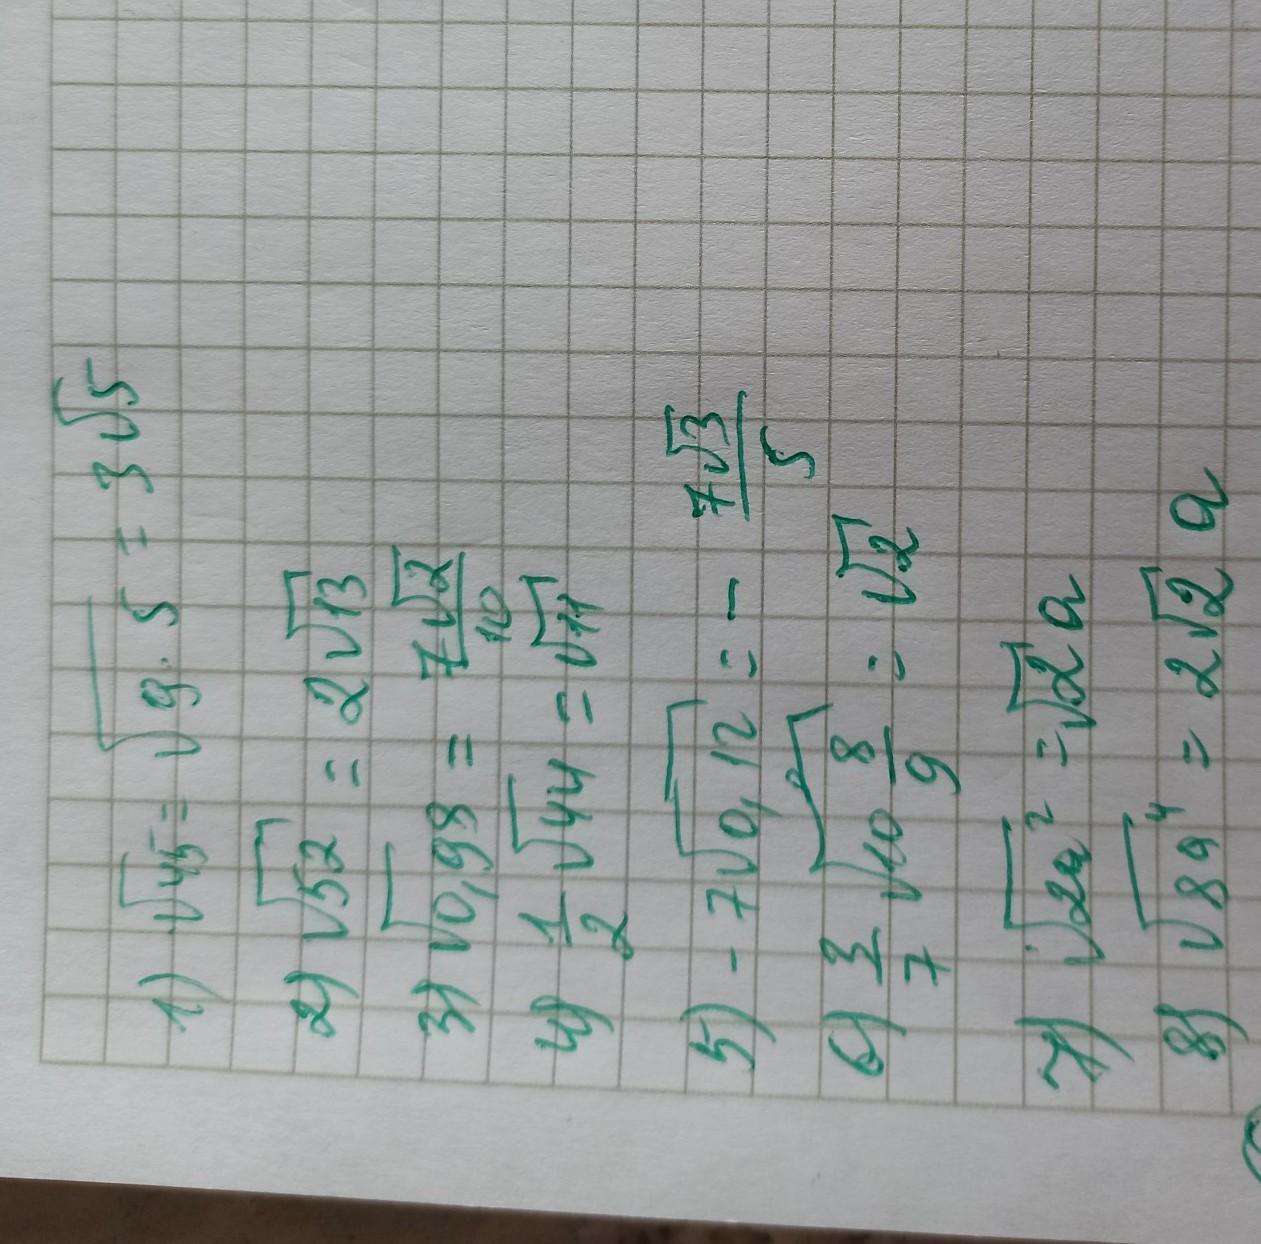 1) √45 = √9·5 = 3√5
2) √52 = 2√13
3) √0,98 = 7√2/10
4) 1/2 √44 = √11
5) -7√0,12 = - 7√3/5
6) 3/7 √10 8/9 = √2
7) √2a² = √2 a
8) √8a⁴ = 2√2 a